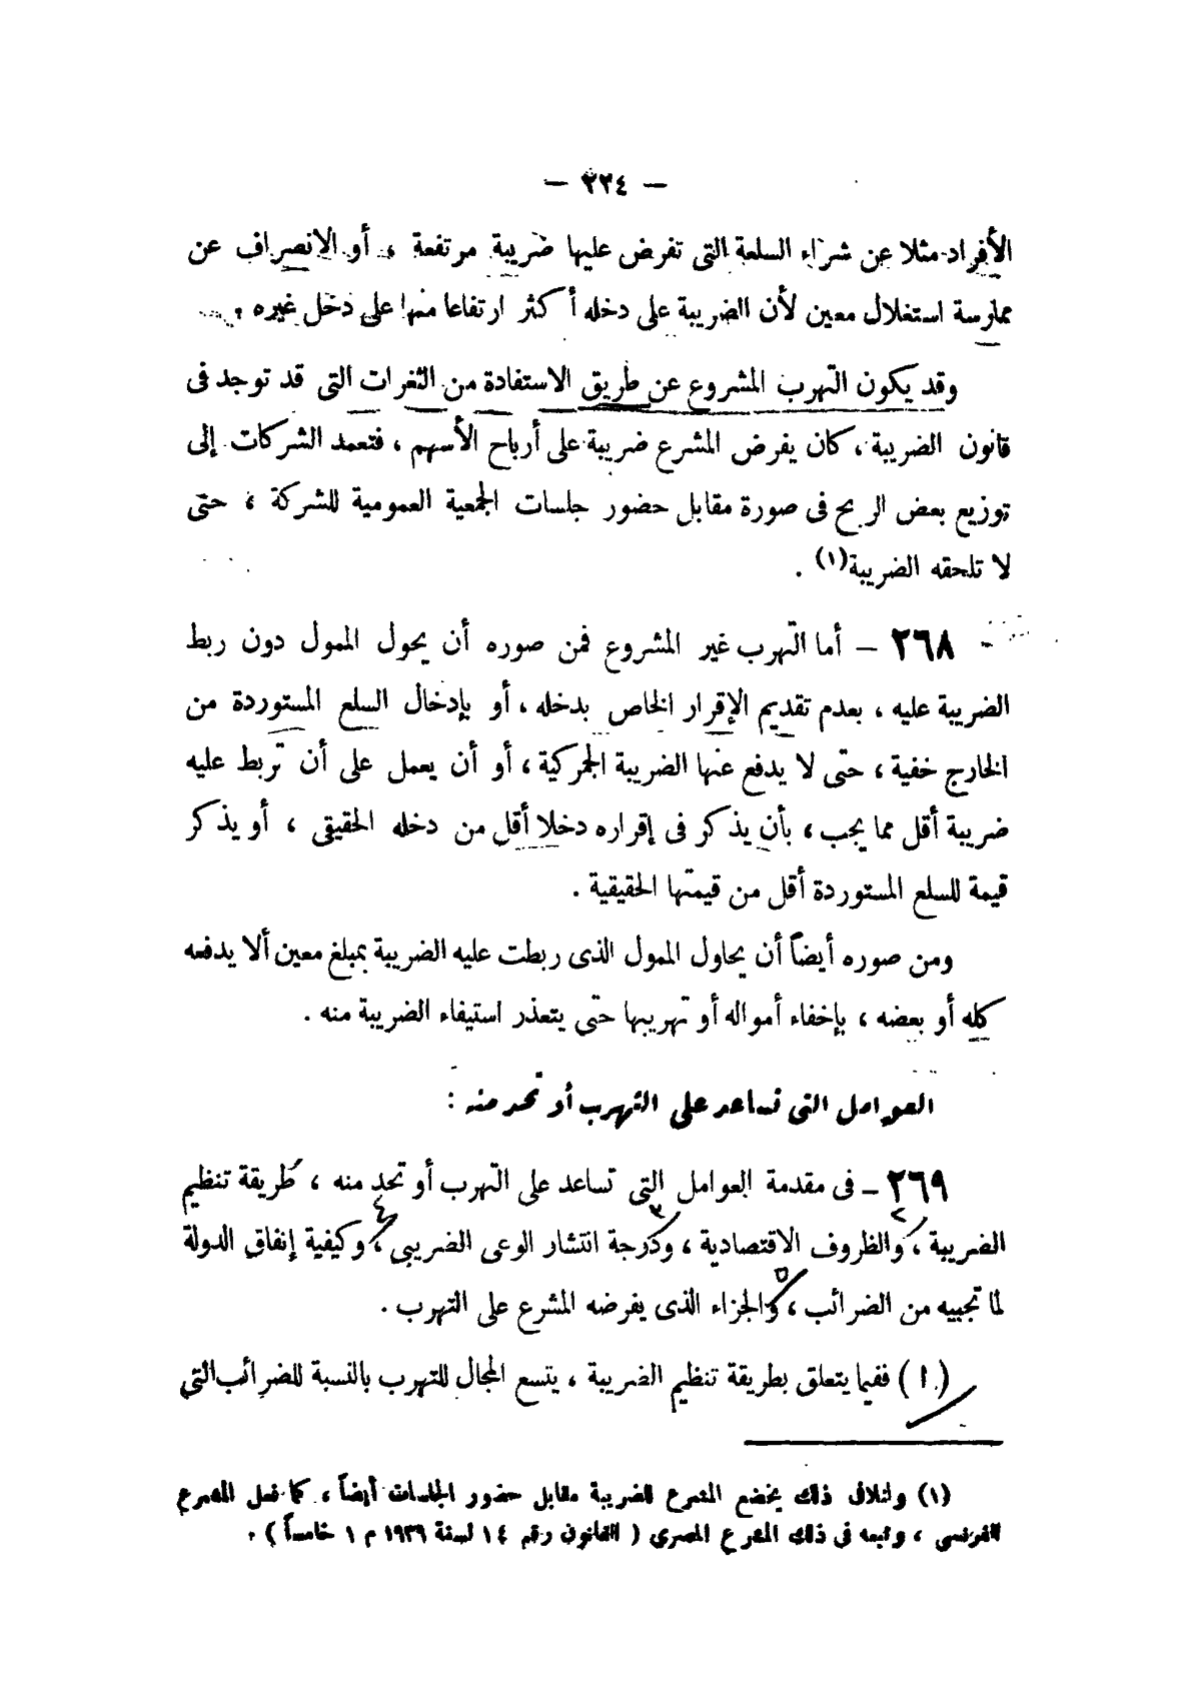 — ٣٣٤ —
الأفراد مثلا عن شراء السلعة التى تفرض عليها ضريبة مرتفعة ، أو الانصراف عن
ممارسة استغلال معين لأن الضريبة على دخله أكثر ارتفاعا منها على دخل غيره .
وقد يكون التهرب المشروع عن طريق الاستفادة من الثغرات التى قد توجد فى
قانون الضريبة ، كان يفرض المشرع ضريبة على أرباح الأسهم ، فتعمد الشركات إلى
توزيع بعض الربح فى صورة مقابل حضور جلسات الجمعية العمومية للشركة ، حتى
لا تلحقه الضريبة(١) .
٢٦٨ — أما التهرب غير المشروع فمن صوره أن يحول الممول دون ربط
الضريبة عليه ، بعدم تقديم الإقرار الخاص بدخله ، أو بإدخال السلع المستوردة من
الخارج خفية ، حتى لا يدفع عنها الضريبة الجمركية ، أو أن يعمل على أن تربط عليه
ضريبة أقل مما يجب ، بأن يذكر فى إقراره دخلا أقل من دخله الحقيقى ، أو يذكر
قيمة للسلع المستوردة أقل من قيمتها الحقيقية .
ومن صوره أيضاً أن يحاول الممول الذى ربطت عليه الضريبة بمبلغ معين ألا يدفعه
كله أو بعضه ، بإخفاء أمواله أو تهريبها حتى يتعذر استيفاء الضريبة منه .
العوامل التى تساعد على التهرب أو تحد منه :
٢٦٩ — فى مقدمة العوامل التى تساعد على التهرب أو تحد منه ، طريقة تنظيم
الضريبة ، والظروف الاقتصادية ، ودرجة انتشار الوعى الضريبى ، وكيفية إنفاق الدولة
لما تجبيه من الضرائب ، والجزاء الذى يفرضه المشرع على التهرب .
( ١ ) ففيما يتعلق بطريقة تنظيم الضريبة ، يتسع المجال للتهرب بالنسبة للضرائب التى
(١) ولتلافى ذلك يخضع المشرع للضريبة مقابل حضور الجلسات أيضاً ، كما فعل المشرع
الفرنسى ، وتبعه فى ذلك المشرع المصرى ( القانون رقم ١٤ لسنة ١٩٣٩ م ١ خامساً ) .